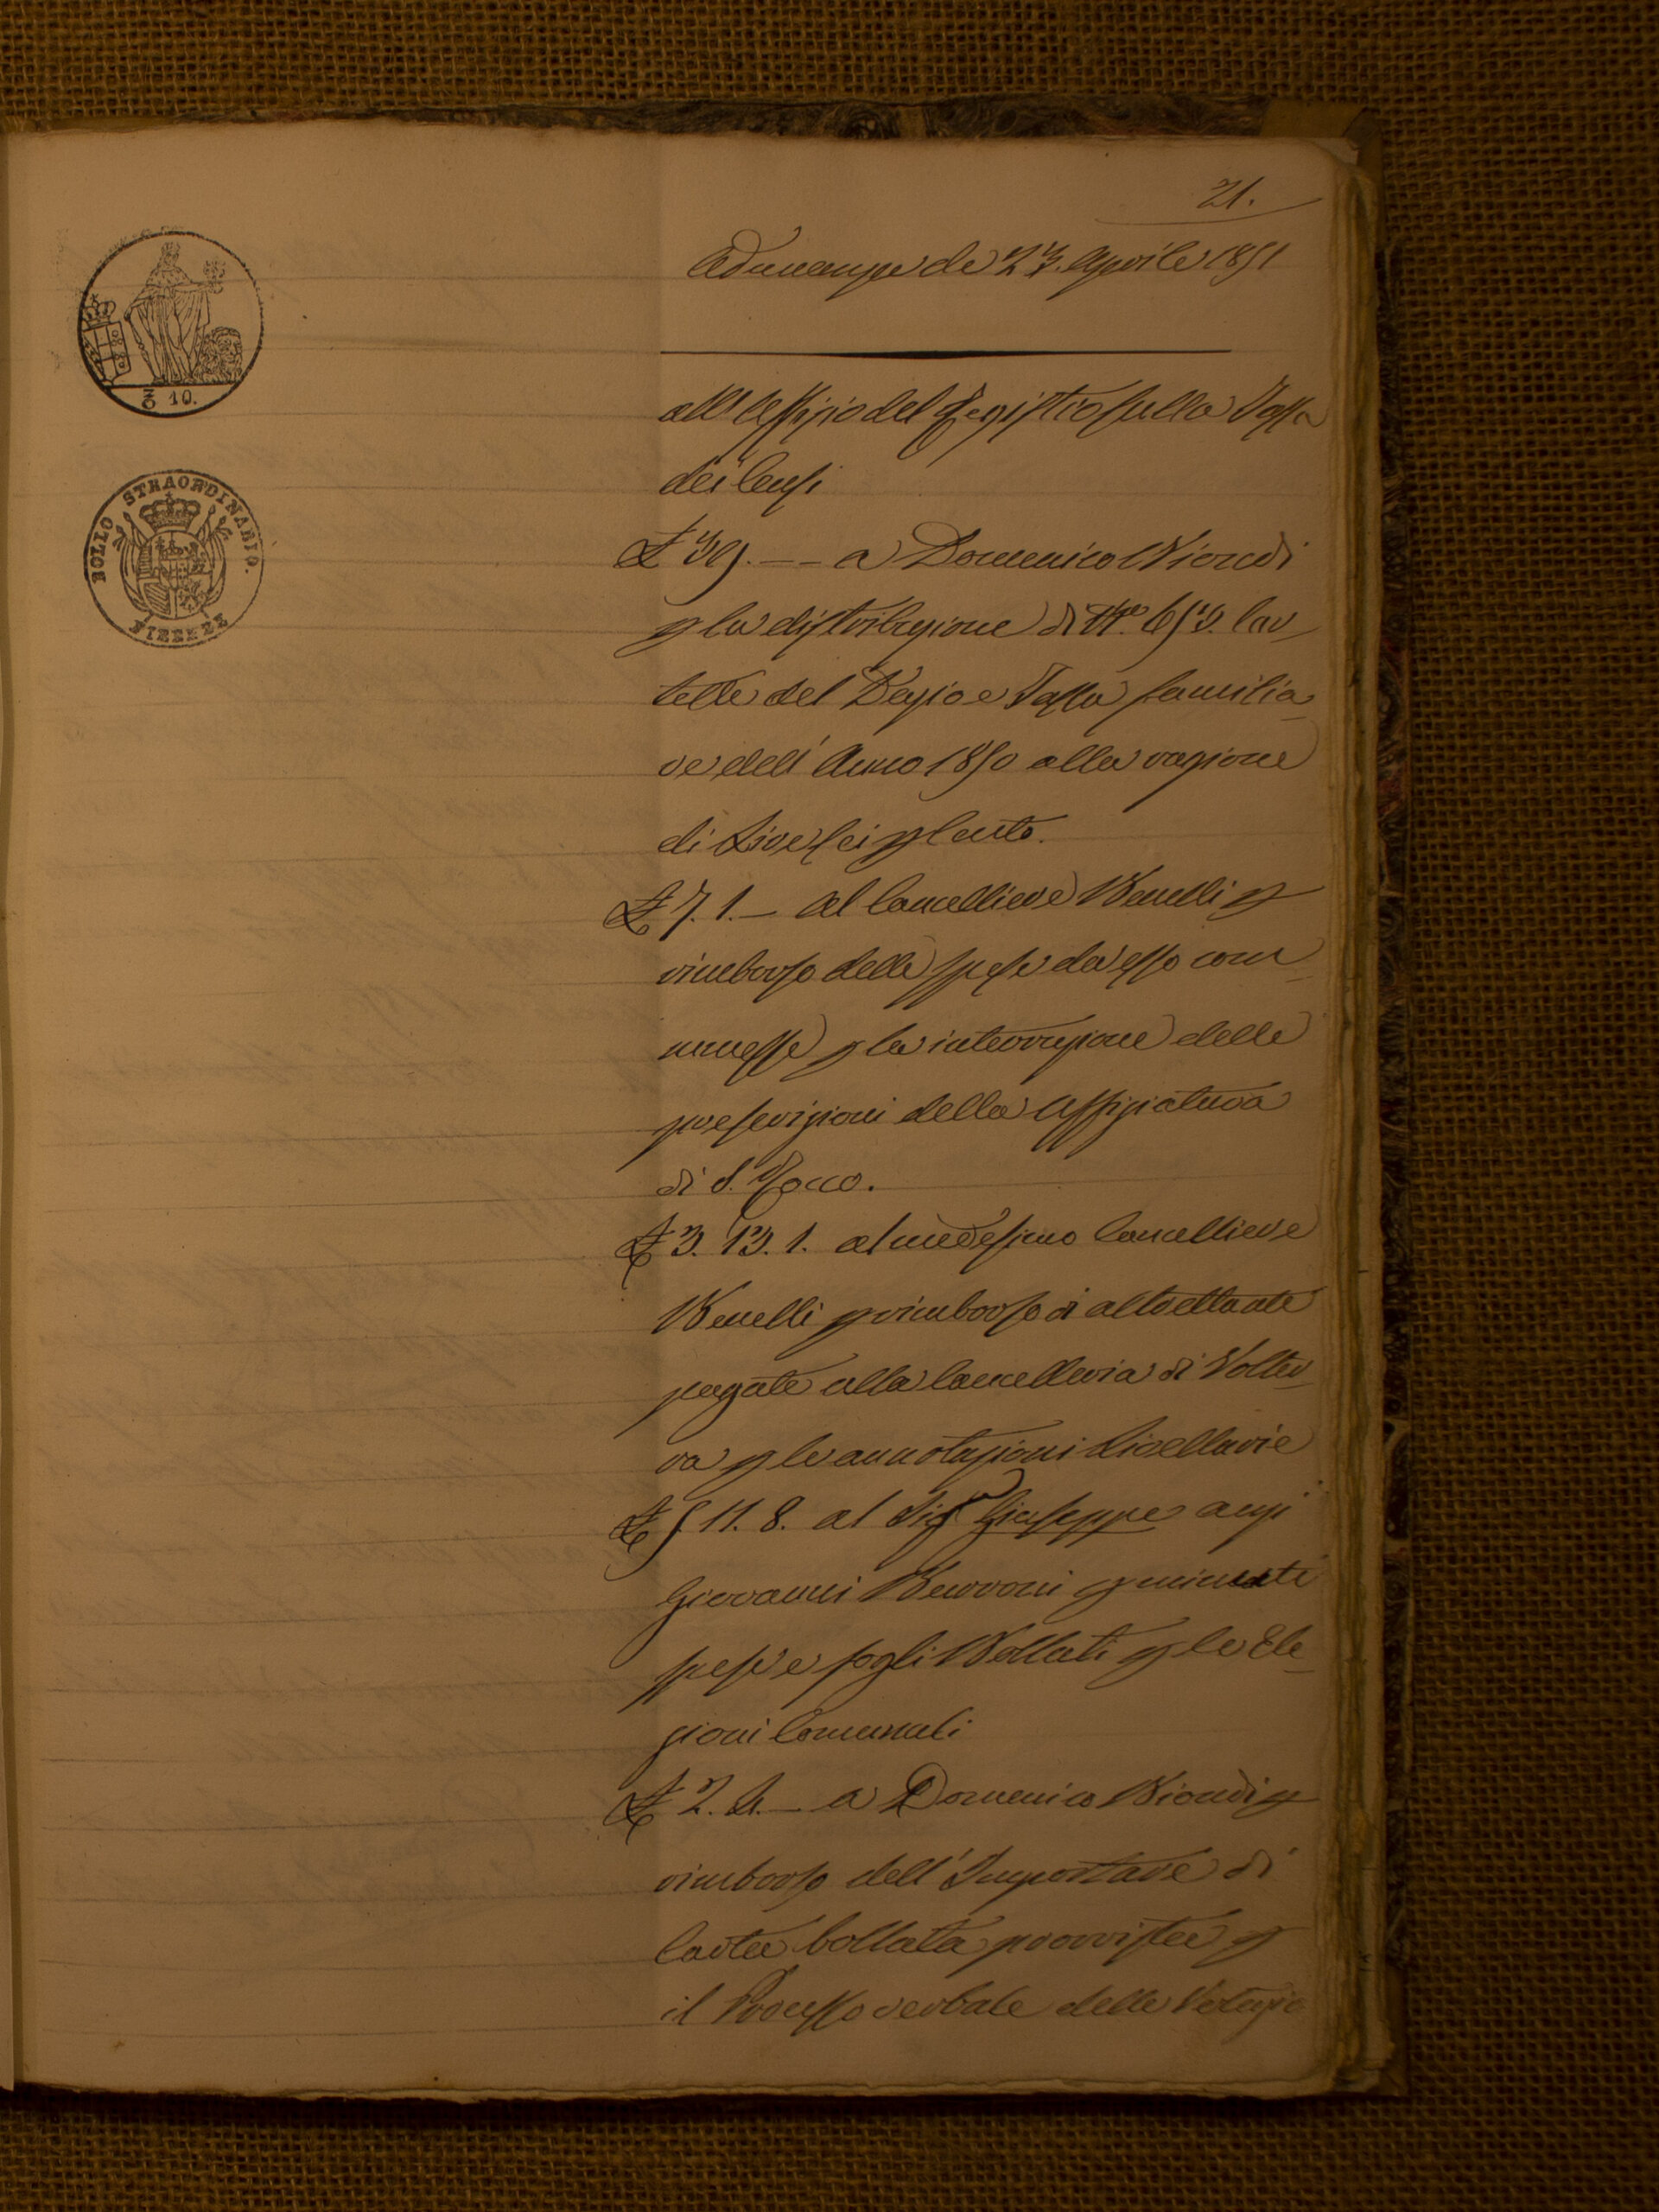 21.
Adunanza de 23. Aprile 1851
3/0 10.
BOLLO STRAORDINARIO.
FIRENZE
all'Uffizio del Registro sulla Tassa
dei Censi
£ 39. - - a Domenico Biondi
p la distribuzione di N.º 653. Car
telle del Dazio e Tassa familia
re dell'Anno 1850 alla ragione
di Lire sei p Cento.
£ 7. 1. - Al Cancelliere Benelli p
rimborso delle spese da esso com
messe p la interruzione delle
prescrizioni della Uffiziatura
di S. Rocco.
£ 3. 13. 1. al medesimo Cancelliere
Benelli p rimborso di altrettante
pagate alla Cancelleria di Volter
ra p le annotazioni Livellarie
£ 5. 11. 8. al Sig.r Giuseppe anzi
Giovanni Benvoni p minute
spese e fogli Bollati p le Ele
zioni Comunali
£ 2. 4. - a Domenico Biondi p
rimborso dell'Importare di
Carta bollata provvista p
il Processo verbale delle Votazio